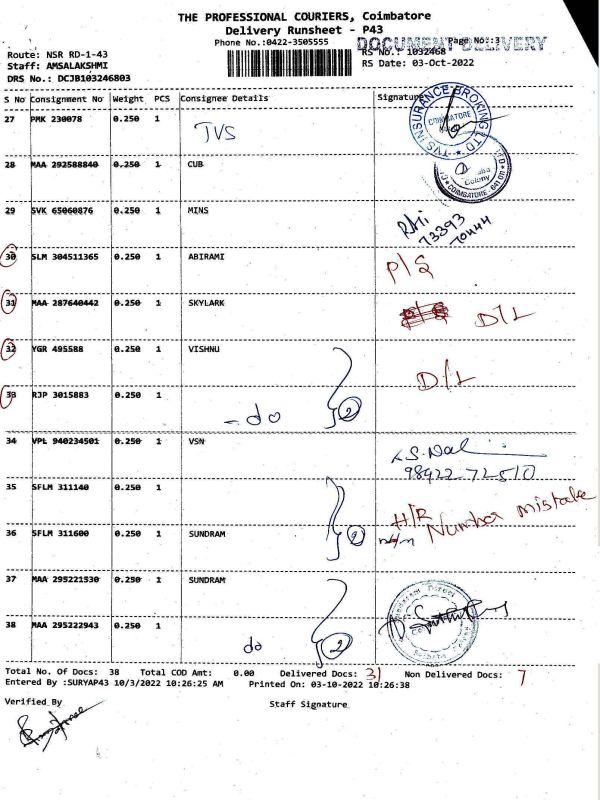 THE PROFESSIONAL COURIERS, Coimbatore
Delivery Runsheet - P43
Phone No.:0422-3505555
Page No.:3
DOCUMENT DELIVERY
Route: NSR RD-1-43
RS No.: 1032468
Staff: AMSALAKSHMI
RS Date: 03-Oct-2022
DRS No.: DCJB103246803
S No Consignment No Weight PCS Consignee Details Signature
27 PMK 230078 0.250 1 TVS
TVS INSURANCE BROKING LTD
COIMBATORE
28 MAA 292588840 0.250 1 CUB
Colony
COIMBATORE - 641 011
29 SVK 65060876 0.250 1 MINS
73393
70444
30 SLM 304511365 0.250 1 ABIRAMI P/S
31 MAA 287640442 0.250 1 SKYLARK D/L
32 YGR 495588 0.250 1 VISHNU
33 RJP 3015883 0.250 1 - do 2 D/L
34 VPL 940234501 0.250 1 VSN
98422-72510
35 SFLM 311140 0.250 1
H/R Number mistake
36 SFLM 311600 0.250 1 SUNDRAM 2
37 MAA 295221530 0.250 1 SUNDRAM
38 MAA 295222943 0.250 1 do 2
Total No. Of Docs: 38 Total COD Amt: 0.00 Delivered Docs: 31 Non Delivered Docs: 7
Entered By :SURYAP43 10/3/2022 10:26:25 AM Printed On: 03-10-2022 10:26:38
Verified By
Staff Signature